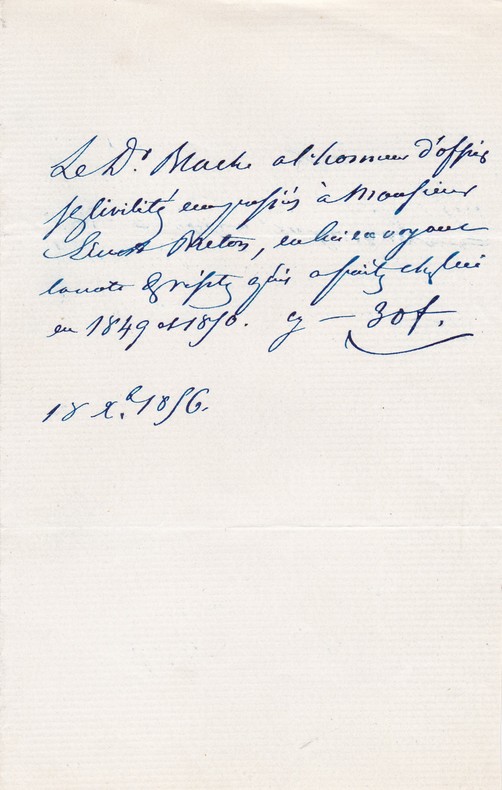 Le Dr. Mache a l'honneur d'offrir
ses civilités empressées à Monsieur
Breton, en lui envoyant
la note de visites qu'il a faites chez lui
en 1849 et 1850. cy — 30 f.
18 Xb. 1856.